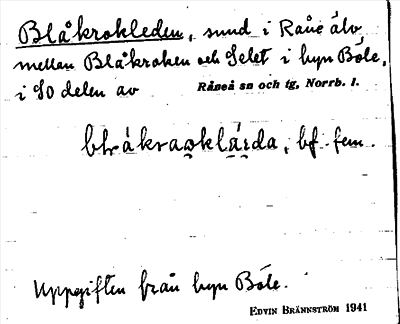 Blåkrokleden, sund i Råne älv
mellan Blåkroken och Selet i byn Böle,
i SO delen av Råneå sn och tg, Norrb. l.
blråkraoklä́rda, bf. fem.
Uppgiften från byn Böle.
EDVIN BRÄNNSTRÖM 1941